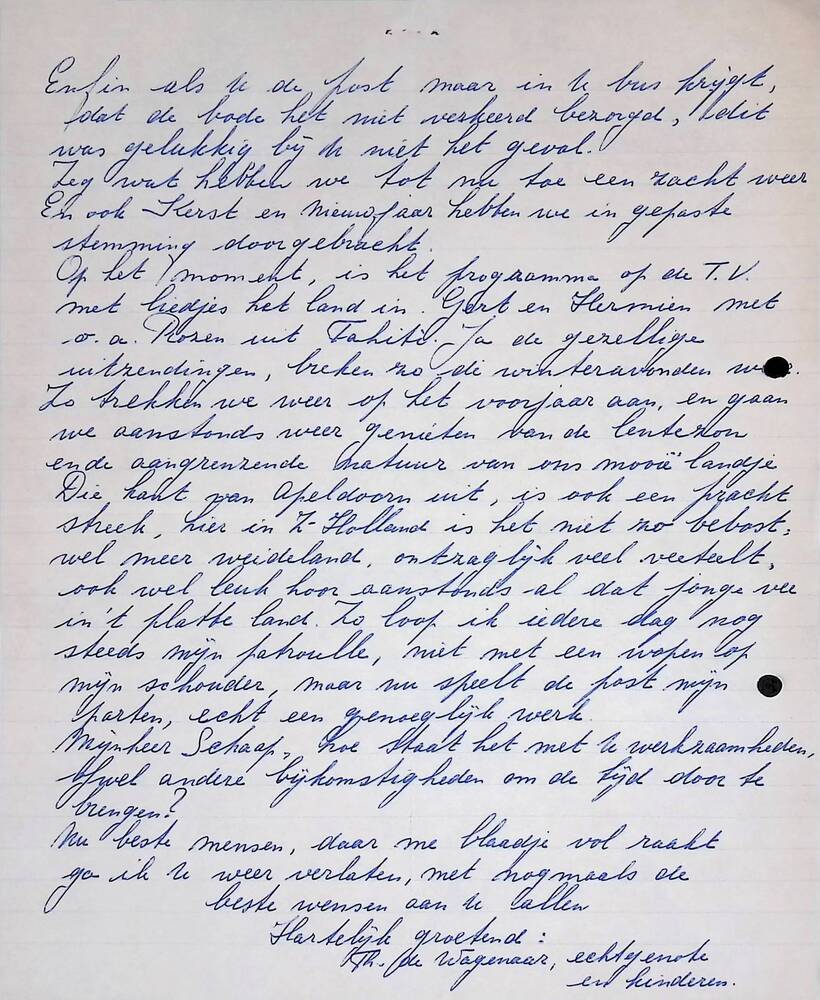 Enfin als U de post maar in U bus krijgt,
dat de bode het niet verkeerd bezorgd, dit
was gelukkig bij U niet het geval.
Zeg wat hebben we tot nu toe een zacht weer
En ook Kerst en Nieuwjaar hebben we in gepaste
stemming doorgebracht.
Op het moment, is het programma op de T.V.
met liedjes het land in. Gert en Hermien met
o.a. Rozen uit Tahiti. Ja de gezellige
uitzendingen, breken zo die winteravonden
Zo trekken we weer op het voorjaar aan, en gaan
we aanstonds weer genieten van de lentezon
en de aangrenzende natuur van ons mooië landje
Die kant van Apeldoorn uit, is ook een pracht
streek, hier in Z-Holland is het niet zo bebost,
wel meer weideland, ontzaglijk veel veeteelt,
ook wel leuk hoor aanstonds al dat jonge vee
in 't platte land. Zo loop ik iedere dag nog
steeds mijn patroulle, niet met een wapen op
mijn schouder, maar nu speelt de post mijn
parten, echt een genoeglijk werk.
Mijnheer Schaap, hoe staat het met U werkzaamheden,
Ofwel andere bijkomstigheden om de tijd door te
brengen?
Nu beste mensen, daar me blaadje vol raakt
ga ik U weer verlaten, met nogmaals de
beste wensen aan U allen
Hartelijk groetend:
Th. de Wagenaar, echtgenote
en kinderen.